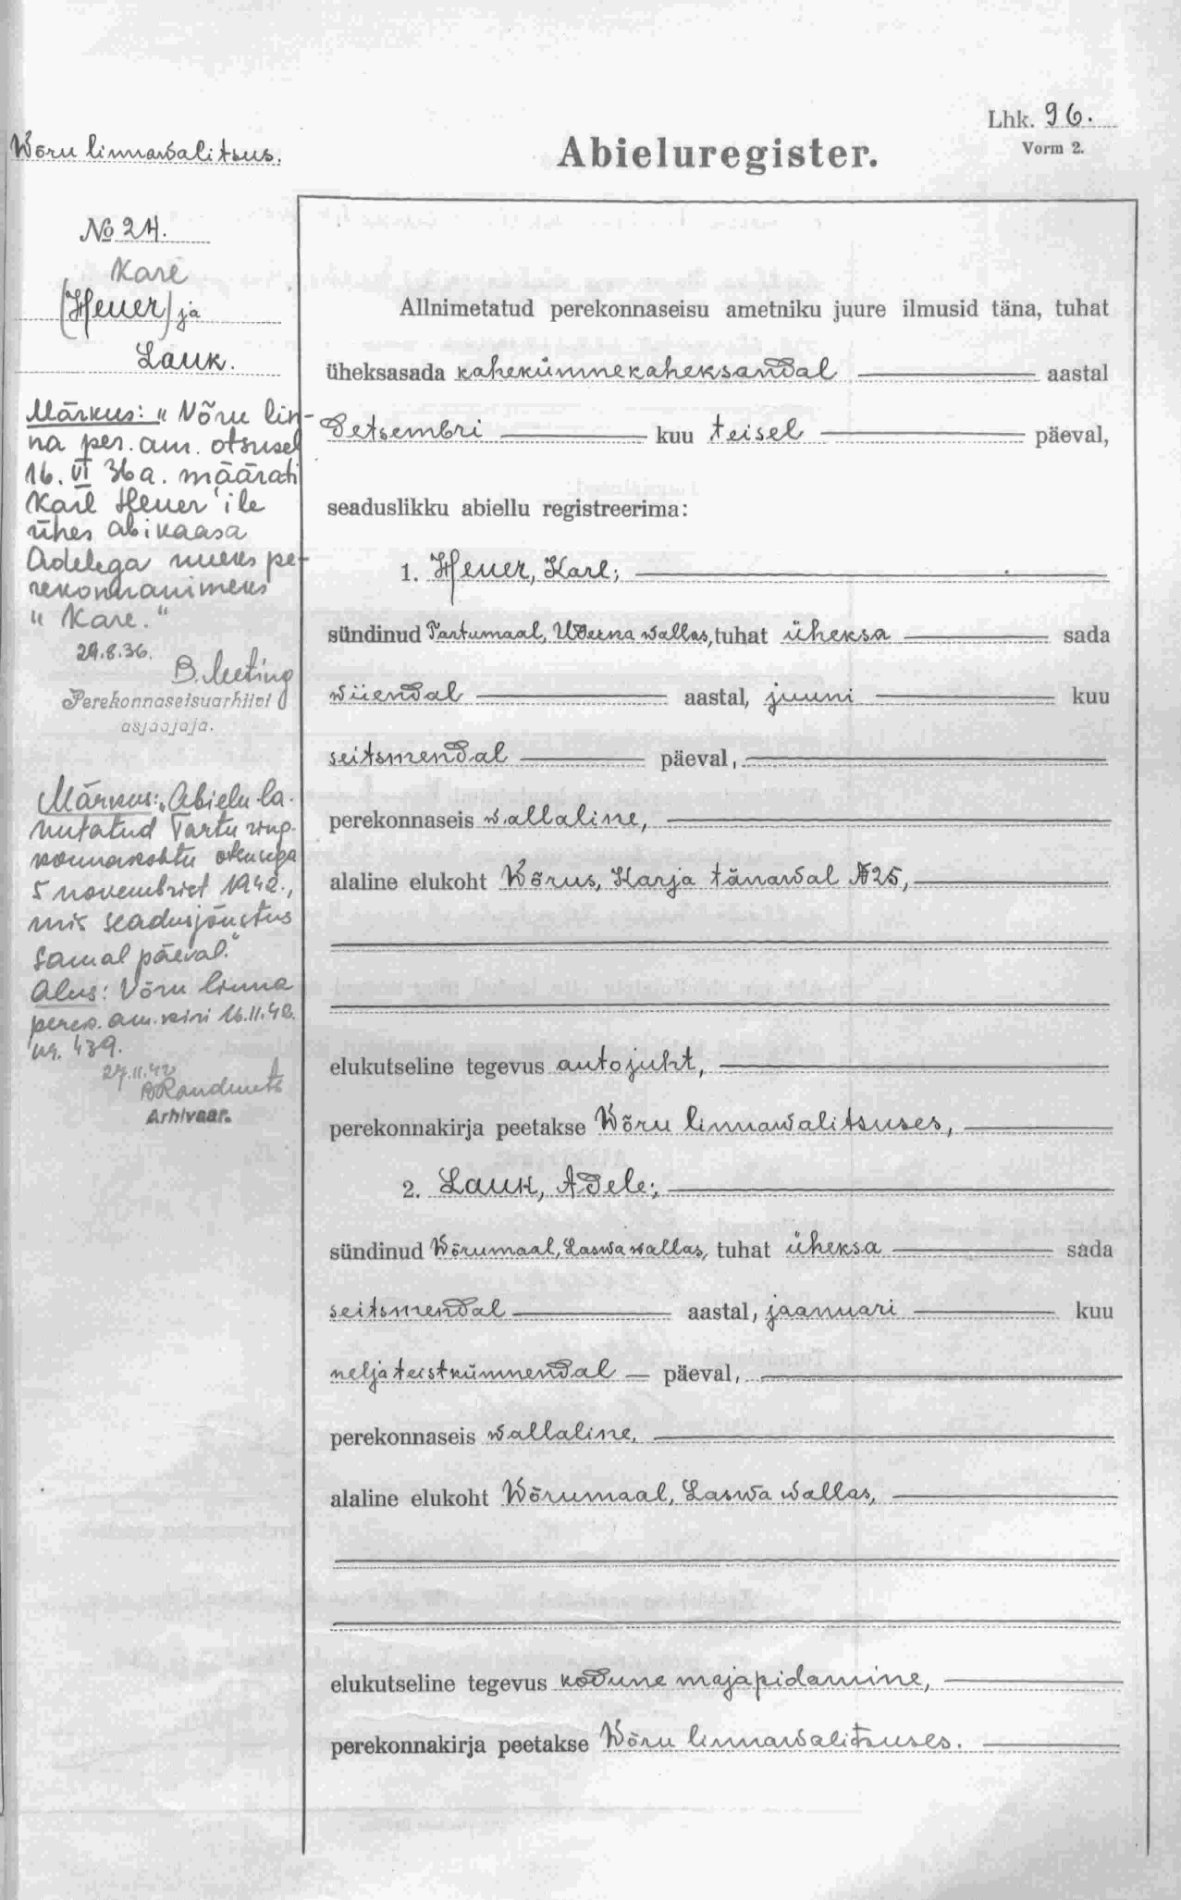 Lhk. 96.
Wõru linnawalitsus.
Abieluregister.
Vorm 2.
№ 24.
Kare
(Heuer) ja
Lauk.
Märkus: „Võru lin-
na per. am. otsusel
16. VI 36 a. määrati
Karl Heuer'ile
ühes abikaasa
Adelega uueks pe-
rekonnanimeks
„Kare."
29.8.36.
B. Meeting
Perekonnaseisuarhiivi
asjaajaja.
Märkus: „Abielu la-
hutatud Tartu ring-
konnakohtu otsusega
5 novembrist 1942.,
mis seadusjõustus
samal päeval."
Alus: Võru linna
perek. am. kiri 16.11.42.
nr. 439.
27.11.42
Arhivaar.
Allnimetatud perekonnaseisu ametniku juure ilmusid täna, tuhat
üheksasada kahekümnekaheksandal aastal
Detsembri kuu teisel päeval,
seaduslikku abiellu registreerima:
1. Heuer, Karl;
sündinud Tartumaal, Uderna wallas, tuhat üheksa sada
wiiendal aastal, juuni kuu
seitsmendal päeval,
perekonnaseis wallaline,
alaline elukoht Wõrus, Karja tänawal №25,
elukutseline tegevus autojuht,
perekonnakirja peetakse Wõru linnawalitsuses,
2. Lauk, Adele;
sündinud Wõrumaal, Laswa wallas, tuhat üheksa sada
seitsmendal aastal, jaanuari kuu
neljateistkümnendal päeval,
perekonnaseis wallaline,
alaline elukoht Wõrumaal, Laswa wallas,
elukutseline tegevus kodune majapidamine,
perekonnakirja peetakse Wõru linnawalitsuses.